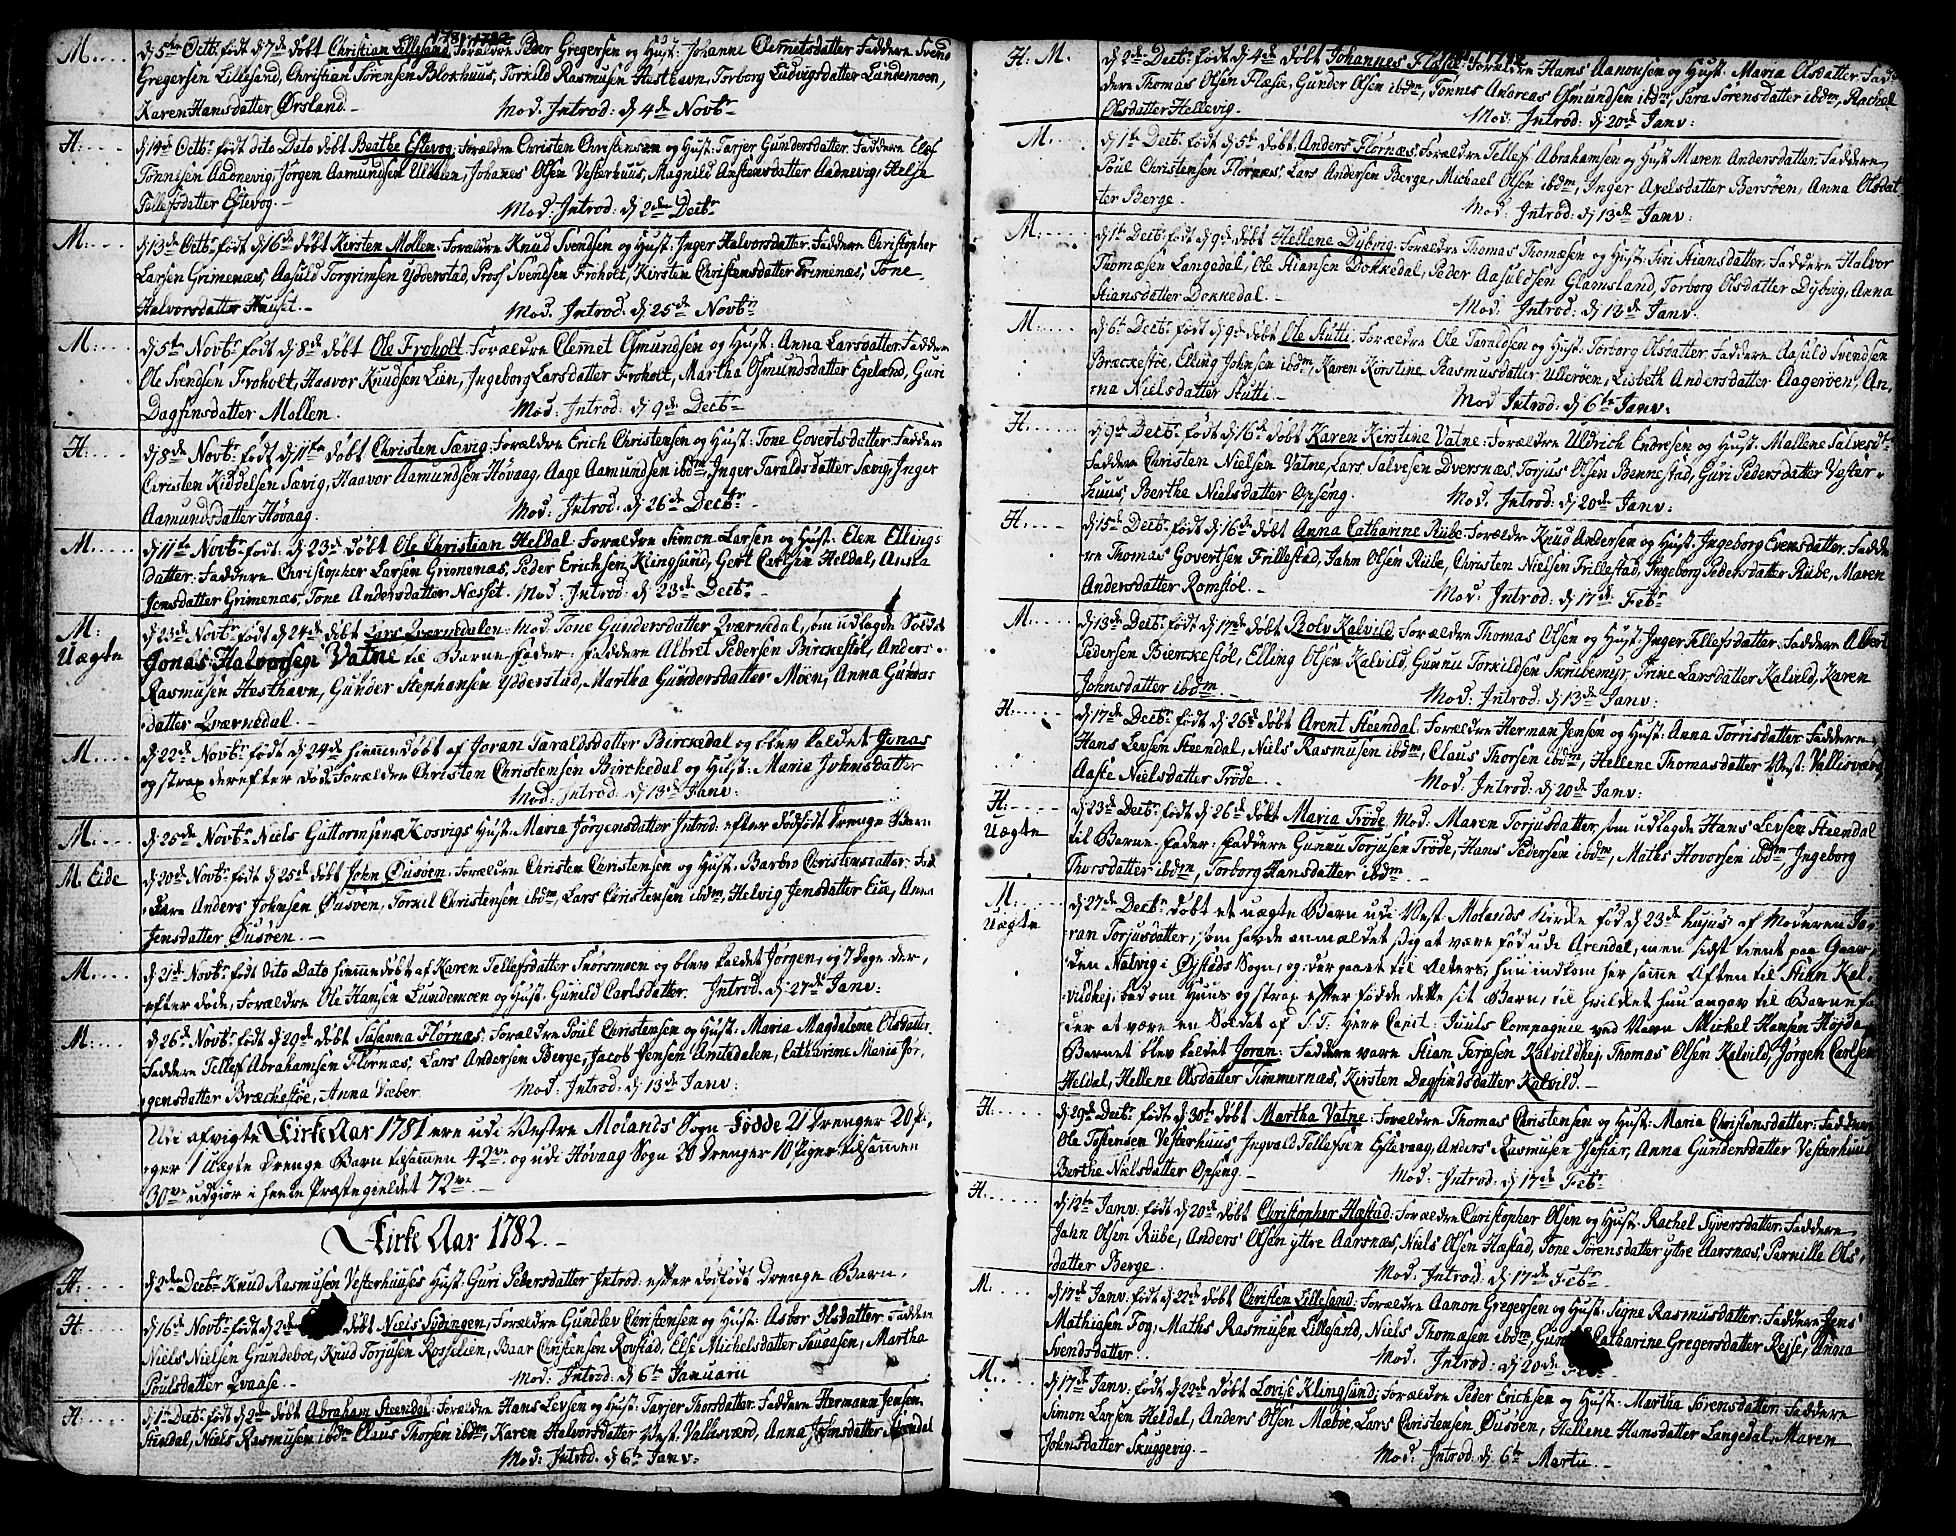 1781. 1782
M. . . . d: 5te Octb: født d: 7de døbt Christian Lillesand. Forældre Peer Gregersen og Hust: Johanne Clemetsdatter. Faddere Svend
Gregersen Lillesand, Christian Sørensen Blokhuus, Torkild Rasmusen Hesthavn, Torborg Ludvigsdatter Lundemoen,
Karen Hansdatter Ørsland. Mod. Introd: d: 4de Novbr
H: . . . d: 14de Octb: født dito Dato døbt Berthe Eslevog. Forældre Christen Christensen og Hust: Tarjer Gundersdatter. Faddere
Tønnesen Aadnevig, Jørgen Aamundsen Ulvøen, Johanes Olsen Vesterhuus, Magnild Anstensdatter Aadnevig, Helje
Tellefsdatter Eslevog. Mod: Introd: d: 2den Decbr
M: . . . d: 13de Octb: født d: 16de døbt Kirsten Mollen. Forældre Knud Svendsen og Hust: Inger Halvorsdatter. Faddere Christopher
Larsen Grimenæs, Aasuld Torgrimsen Ydderstad, Poul Svendsen Froholt, Kirsten Christensdatter Grimenæs, Tone
Halvorsdatter Huuset. Mod. Introd: d: 25de Novbr
M: . . . d: 5te Novbr: født d: 8de døbt Ole Froholt. Forældre Clemet Osmundsen og Hust: Anna Larsdatter. Faddere
Ole Svendsen Froholt, Haavor Knudsen Lien, Ingeborg Larsdatter Froholt, Martha Osmundsdatter Egeland, Guri
Dagfinsdatter Mollen. Mod: Introd: d: 9de Decbr
H: . . . d: 8de Novbr: født d: 11te døbt Christen Sævig. Forældre Erich Christensen og Hust: Tone Govertsdatter. Faddere
Christen Kiddelsen Sævig, Haavor Aamundsen Høvaag, Aage Aamundsen ibdm Inger Taraldsdatter Sævig, Inger
Aamundsdatter Høvaag. Mod: Introd: d: 26de Decbr
M. . . . d: 11te Novbr: født d: 23de døbt Ole Christian Heldal. Forældre Simon Larsen og Hust: Elen Ellings
datter: Faddere Christopher Larsen Grimenæs, Peder Erichsen Klingsund, Gert Carlsen Heldal, Anna
Jensdatter Grimenæs, Tone Andersdatter Næsset. Mod: Introd: d: 23de Decbr
M: Uægte d: 23de Novbr født d: 24de døbt Lars Qværnedalen: Mod: Tone Gundersdatter Qværnedal, som udlagde Soldat
Jonas Halvorsen Vatne til Barne Fader: Faddere Albret Pedersen Birckestøl, Anders
Rasmusen Hesthavn, Gunder Stephansen Ydderstad, Martha Gundersdatter Moen, Anna Gunders
datter Qværnedal.
M. . . . d: 22de Novbr født d: 24de hiemmedøbt af Joran Taraldsdatter Birckedal og blev kaldet Jonas
og strax derefter død. Forældre Christen Christensen Birckedal og Hust: Maria Johnsdatter
Mod: Introd: d: 13de Janv:
M. . . . d: 25de Novbr Niels Guttormsens Kosvigs Hust: Maria Jørgensdatter Introd: efter dødfødt Drenge Barn
M. Eide d: 20de Novbr født d: 25de døbt John Øusøen. Forældre Christen Christensen og Hust: Barbro Christensdatter: Fad
dere Anders Johnsen Øusøen, Torkil Christensen ibdm, Lars Christensen ibdm, Helvig Jensdatter Eide, Anna
Jensdatter Øusøen.
M. . . . d: 21de Novbr født dito Dato hiemmedøbt af Karen Tellefsdatter Snorsmoen og blev kaldet Jørgen, og 7 Dage der,
efter døde, Forældre Ole Hansen Lundemoen og Hust: Gunild Carlsdatter. Introd. d: 27de Janv:
M: . . . d: 26de Novbr født d: 29de døbt Susanna Flornæs. Forældre Poul Christensen og Hust: Maria Magdalene Olsdatter
Faddere Tellef Abrahamsen Flornæs, Lars Andersen Berge, Jacob Jensen Amtedalen, Catharine Maria Jør,
gensdatter Bræckestøe, Anna Væber. Mod: Introd: d: 13de Janv:
Udi afvigte Kirke Aar 1781 ere udi Vestre Molands Sogn Fødde 21 Drenger 20 Pi,
ger 1 Uægte Drenge Barn tilsammen 42ve og udi Høvaag Sogn 20 Drenger 10 Piger tilsammen
30ve udgiør i heele Præstegieldet 72ve
Kirke Aar 1782.
H: . . . d: 2den Decbr Knud Rasmusen Vesterhuuses Hust: Guri Pedersdatter Introd: efter dødfødt Drenge Barn.
H: . . . d: 16de Novbr født d: 2de døbt Niels Sydingen, Forældre Gundlev Christensen og Hust: Asbor Olsdatter. Faddere
Niels Nielsen Grundeboe, Knud Torjusen Rosselien, Baar Christensen Rovstad, Else Michelsdatter Sauaasen, Martha
Poulsdatter Qvaase. Mod: Introd: d: 6te Januarii
H. . . . d: 1te Decbr født d: 2den døbt Abraham Steendal. Forældre Hans Levsen og Hust: Tarjer Thorsdatter. Faddere Hermann Jensen
Stendal, Niels Rasmusen ibdm Claus Thorsen ibdm, Karen Halvorsdatter Vest: Vallesværd, Anna Johnsdatter Stendal
Mod: Introd. d: 6te Janv:
H. M. d: 2de Decbr: født d: 4de døbt Johannes Flæse. Forældre Hans Aanonsen og Hust: Maria Olsdatter. Fad
dere Thomas Olsen Flæsie, Gunder Olsen ibdm, Tønnes Andreas Osmundsen ibdm, Sara Sørensdatter ibdm, Rachel
Olsdatter Hellevig. Mod: Introd: d: 20de Janv:
M. . . . d: 1te Decbr: født d: 5te døbt Anders Flornæs, Forældre Tellef Abrahamsen og Hust Maren Andersdatter. Faddere
Poul Christensen Flornæs, Lars Andersen Berge, Michael Olsen ibdm, Inger Axelsdatter Bersøen, Anna Olsdat
ter Berge. Mod: Introd: d: 13de Janv:
M: . . . d: 1te Decbr født d: 9de døbt Hellene Dybvig. Forældre Thomas Thomæsen og Hust: Siri Stiansdatter: Faddere Halvor
Thomæsen Langedal, Ole Stiansen Dokkedal, Peder Aasuldsen Glamsland, Torborg Olsdatter Dybvig, Anna
Stiansdatter Dokkedal. Mod: Introd: d: 13de Janv.
M: . . . d: 6te Decbr: født d: 9de døbt Ole Stutti. Forældre Ole Taraldsen og Hust: Torborg Olsdatter: Faddere Aasuld Svendsen
Bræckestøe, Elling Johnsen ibdm, Karen Kirstine Rasmusdatter Ullerøen, Lisbeth Andersdatter Aagerøen, An,
na Nielsdatter Stutti. Mod Introd: d: 6te Janv:
H: . . . d: 9de Decbr: født d: 16de døbt Karen Kirstine Vatne: Forældre Uldrich Endresen og Hust: Mallene Salvesdt
Faddere Christen Nielsen Vatne, Lars Salvesen Dversnæs, Torjus Olsen Bennestad, Guri Pedersdatter Vester,
huus, Berthe Nielsdatter Opseng. Mod: Introd: d: 20de Janv:
H. . . . d: 15de Decbr: født d: 16de døbt Anna Catharine Rübe. Forældre Knud Andersen og Hust: Ingeborg Evensdatter. Fadde
re Thomas Govertsen Frillestad, Jahn Olsen Rübe, Christen Nielsen Frillestad, Ingeborg Pedersdatter Rübe, Maren
Andersdatter Romstøl. Mod: Introd: d: 17de Febr
M. . . . d: 13de Decbr: født d: 17de døbt Bolv Kalvild. Forældre Thomas Olsen og Hust: Inger Tellefsdatter: Faddere Albert
Pedersen Bierckestøl, Elling Olsen Kalvild, Gunnu Torkildsen Sknibemyr, Trine Larsdatter Kalvild, Karen
Johnsdatter ibdm. Mod: Introd: d: 13de Janv:
H. . . . d: 17de Decbr: født d: 26de døbt Arent Steendal: Forældre Herman Jensen og Hust: Anna Torrisdatter. Faddere
Hans Levsen Steendal, Niels Rasmusen ibdm, Claus Thorsen ibdm, Hellene Thomasdatter Vest: Vallesværd,
Aaste Nielsdatter Trøde. Mod: Introd: d: 20de Janv:
H: . . . Uægte d: 23de Decbr: født d: 26de døbt Maria Trøde. Mod: Maren Torjusdatter, som udlagde Hans Levsen Steendal
til Barne Fader: Faddere Gunnu Torjusen Trøde, Hans Pedersen ibdm, Maths Hovorsen ibdm, Ingeborg
Thorsdatter ibdm, Torborg Hansdatter ibdm.
M. Uægte d: 27de Decbr: døbt et uægte Barn udi Vest: Molands Kirke, fød d: 23de hujus af Moderen Jo
ran Torjusdatter, som havde anmældet sig at være fød udi Arendal, men sidst tient paa Gaar
den Natvig i Øjestads Sogn, og der gaaet til Alters; hun indkom her samme Aften til Stian Kal
vildhej, bad om Huus og strax efter fødde dette sit Barn, til hvilcket hun angav til Barnefa
der at være en Soldat af S. T. Herr Capit: Juuls Compagnie ved Navn Michel Hansen Højdal
Barnet blev kaldet Joran: Faddere vare Stian Terjesen Kalvildhej, Thomas Olsen Kalvild, Jørgen Carlsen
Heldal, Hellene Olsdatter Timmernæs, Kirsten Dagfindsdatter Kalvild.
H. . . . d: 29de Decbr: født d: 30te døbt Martha Vatne. Forældre Thomas Christensen og Hust: Maria Christensdatter: Faddere
Ole Tostensen Vesterhuus, Ingvald Tellefsen Eslevaag, Anders Rasmusen Isefiær, Anna Gundersdatter Vesterhuus
Berthe Nielsdatter Opseng. Mod: Introd: d: 17de Febr
H. . . . d: 12te Janv: født d: 20de døbt Christopher Hæstad: Forældre Christopher Olsen og Hust: Rachel Syversdatter: Faddere
Jahn Olsen Rübe, Anders Olsen yttre Aarsnæs, Niels Olsen Hæstad, Tone Sørensdatter yttre Aarsnæs, Pernille Ols,
datter Berge. Mod: Introd: d: 17de Febr
M. . . . d: 17de Janv: født d: 22de døbt Christen Lillesand: Forældre Aanon Gregersen og Hust: Signe Rasmusdatter: Faddere Jens
Mathiasen Fog, Maths Rasmusen Lillesand, Niels Thomæsen ibdm Catharine Gregersdatter Rejse, Anna
Svendsdatter. Mod: Introd: d: 20de
M. . . . d: 17de Janv: født d: 22de døbt Lovise Klingsund: Forældre Peder Erichsen og Hust: Martha Sørensdatter: Faddere
Simon Larsen Heldal, Anders Olsen Mæbøe, Lars Christensen Øusøen, Hellene Hansdatter Langedal, Maren
Johnsdatter Skuggevig. Mod: Introd: d: 6te Martii.